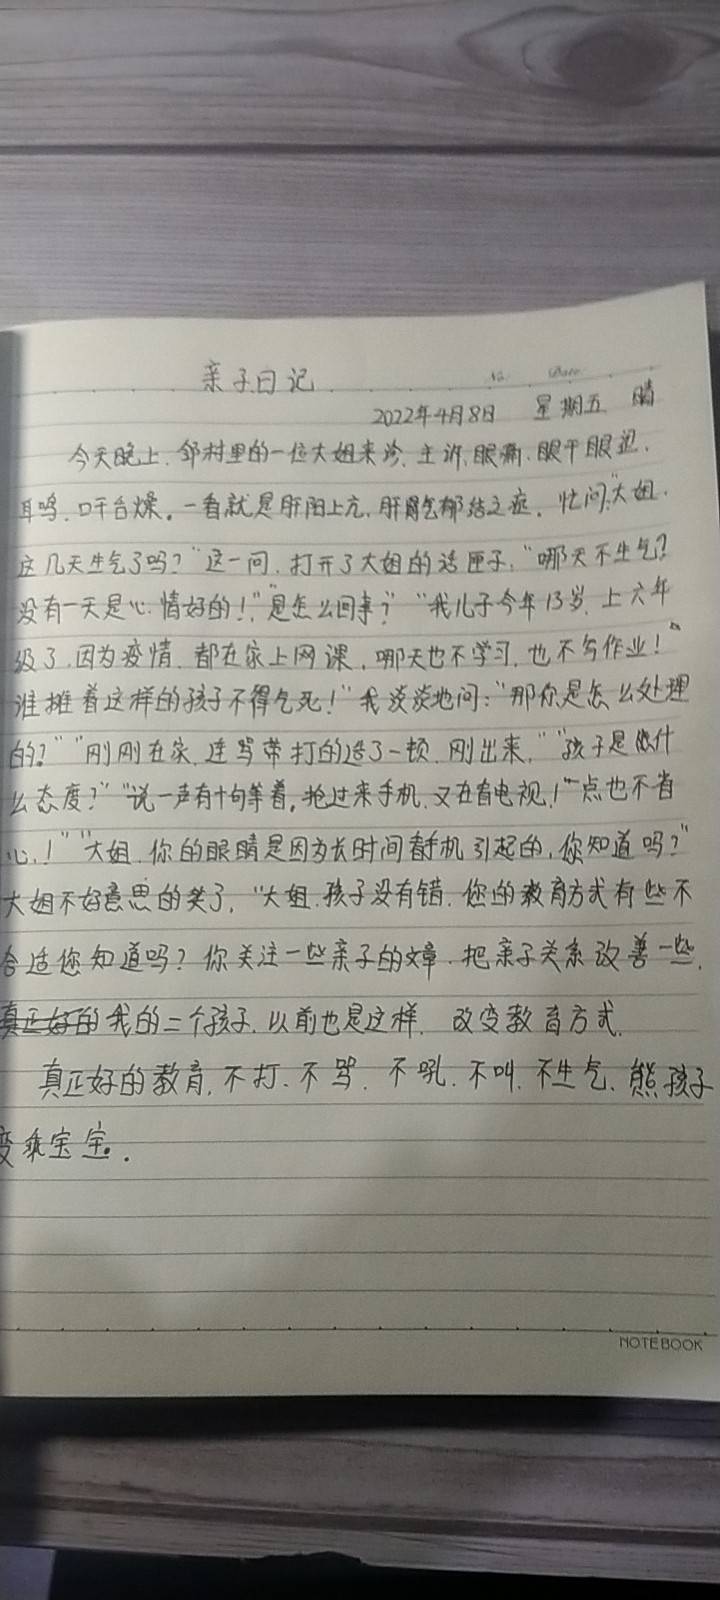 亲子日记
No. Date
2022年4月8日 星期五 晴
今天晚上.邻村里的一位大姐来诊.主诉.眼痛.眼干眼迎.
耳鸣.口干舌燥。一看就是肝阳上亢.肝胃气郁结之症.忙问."大姐.
这几天生气了吗?"这一问.打开了大姐的话匣子,"哪天不生气?
没有一天是心情好的!""是怎么回事?""我儿子今年13岁.上六年
级了.因为疫情.都在家上网课,哪天也不学习.也不写作业!"
谁摊着这样的孩子不得气死!"我淡淡地问:"那你是怎么处理
的?""刚刚在家.连骂带打的造了一顿.刚出来,""孩子是做什
么态度?""说一声有十句等着,抢过来手机.又在看电视!一点也不省
心.!""大姐.你的眼睛是因为长时间看手机引起的,你知道吗?"
大姐不好意思的笑了,"大姐.孩子没有错.您的教育方式有些不
合适您知道吗?你关注一些亲子的文章.把亲子关系改善一些.
真正好的我的二个孩子.以前也是这样.改变教育方式.
真正好的教育.不打.不骂.不吼.不叫.不生气.熊孩子
变乖宝宝.
NOTEBOOK